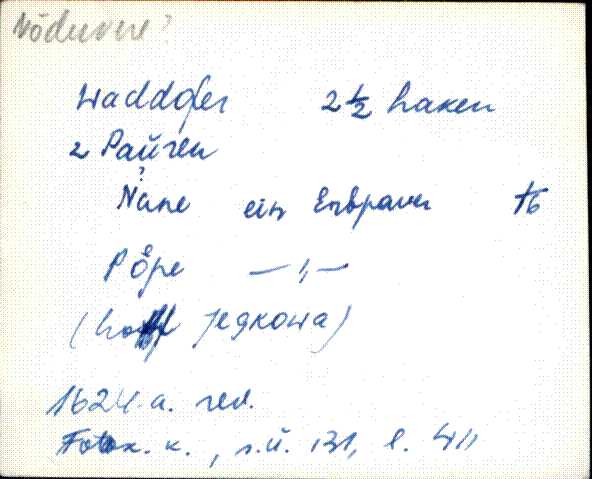 Nõduvere?
Waddofer 2 1/2 haken
2 Pauren
Nane ein Erbpauer 1/6
Pöpe —„—
(hoff Jegkowa)
1624. a. rev.
Fotok. k., s.ü. 131, l. 411